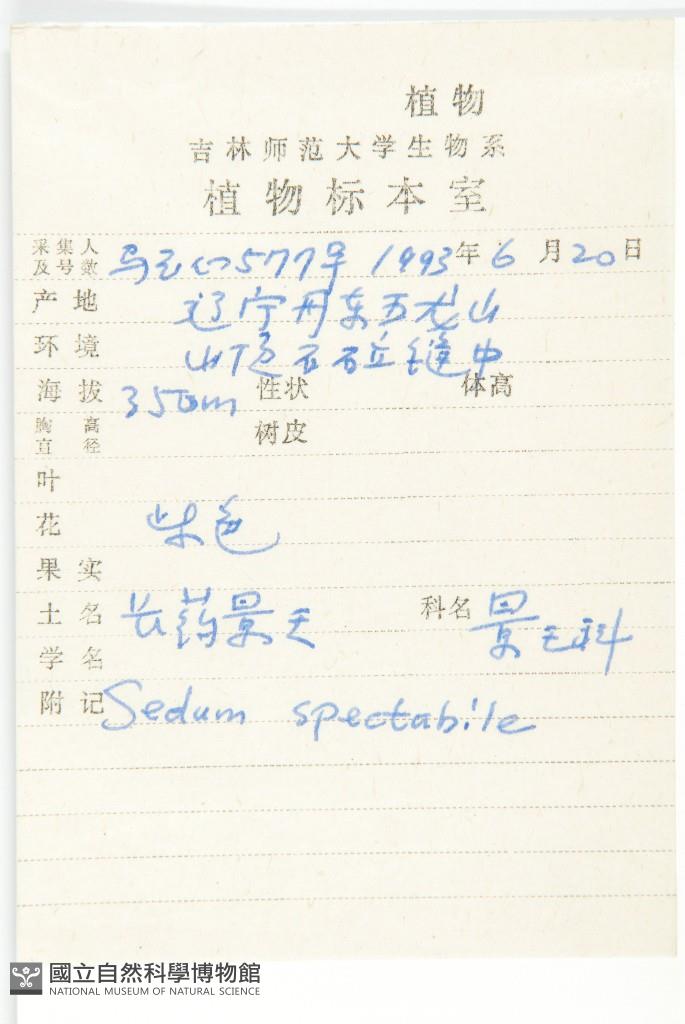 植物
吉林师范大学生物系
植物标本室
采集人及号数 577号 1993年6月20日
产地 辽宁丹东五龙山
环境 山顶石缝中
海拔 350m 性状 体高
胸高直径 树皮
叶
花 紫色
果实
土名 长药景天 科名 景天科
学名
附记 Sedum spectabile
國立自然科學博物館
NATIONAL MUSEUM OF NATURAL SCIENCE